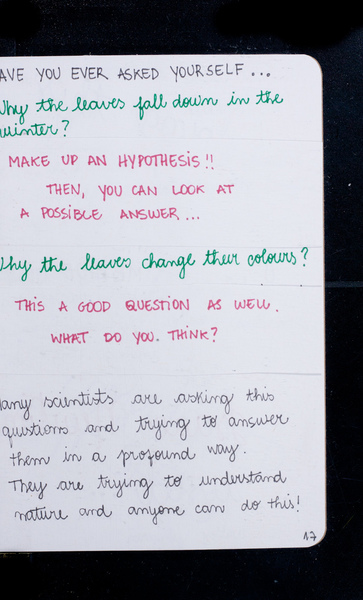 AVE YOU EVER ASKED YOURSELF...
Why the leaves fall down in the
winter?
MAKE UP AN HYPOTHESIS!!
THEN, YOU CAN LOOK AT
A POSSIBLE ANSWER...
Why the leaves change their colours?
THIS A GOOD QUESTION AS WELL.
WHAT DO YOU. THINK?
any scientists are asking this
questions and trying to answer
them in a profound way.
They are trying to understand
nature and anyone can do this!
17